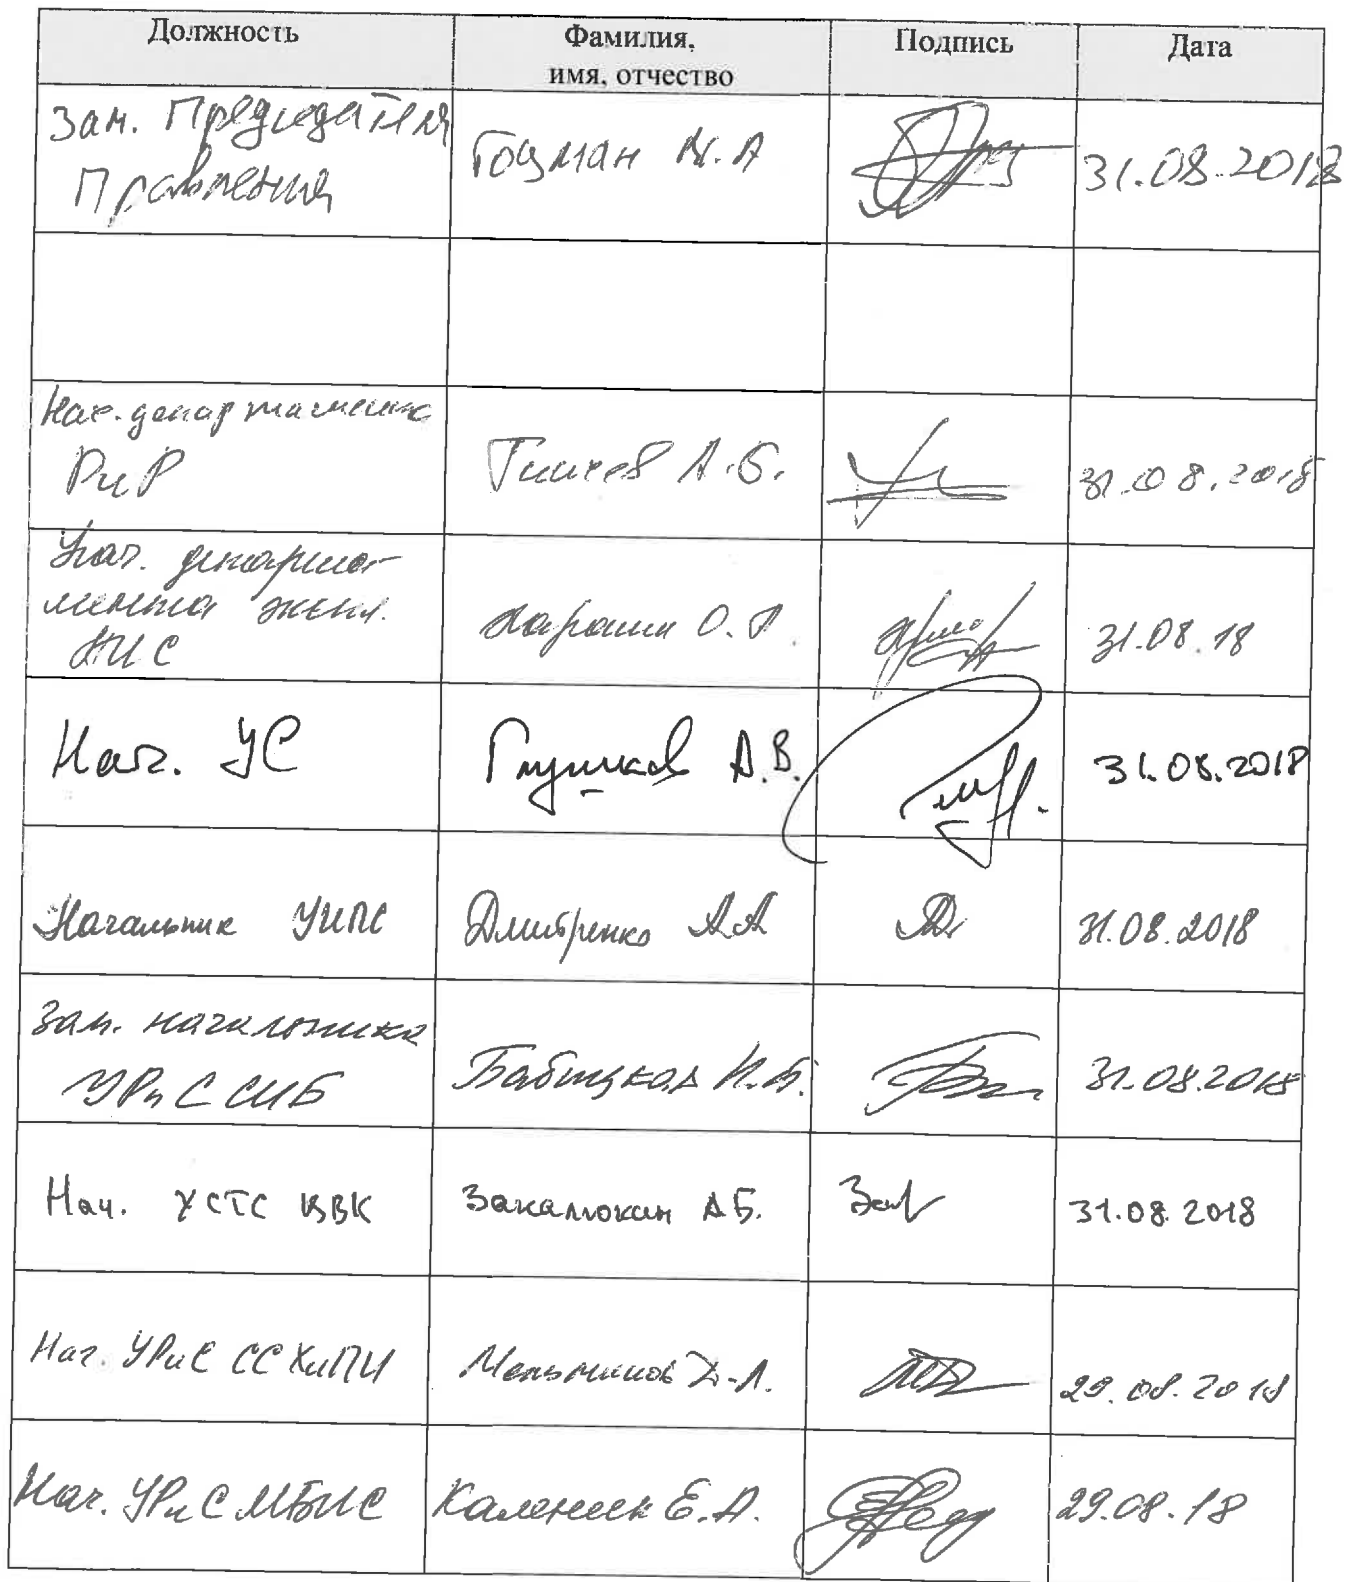 Должность
Фамилия,
имя, отчество
Подпись
Дата
Зам. Председателя
Правления
Гоцман М.А
31.08.2018
Нач. департамента
РиР
А.Б.
31.08.2018
Нач. департа-
мента экспл.
О.
31.08.18
Нач. УС
Глушков А.В.
31.08.2018
Начальник УИПС
Дмитренко А.А
31.08.2018
Зам. начальника
УРиС СИБ
Бабицкая И.Б.
31.08.2018
Нач. УСТС ЦВК
Закалюкин А.Б.
31.08.2018
Нач. УРиС ССХиПИ
Мельников Д.Л.
29.08.2018
Нач. УРиС МБИС
Каленик Е.А.
29.08.18